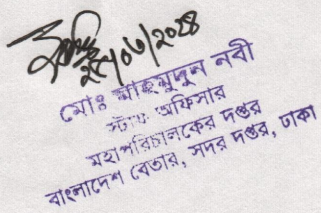 ২৫/০৬/২০২৪
মোঃ মাহমুদুন নবী
স্টাফ অফিসার
মহাপরিচালকের দপ্তর
বাংলাদেশ বেতার, সদর দপ্তর, ঢাকা